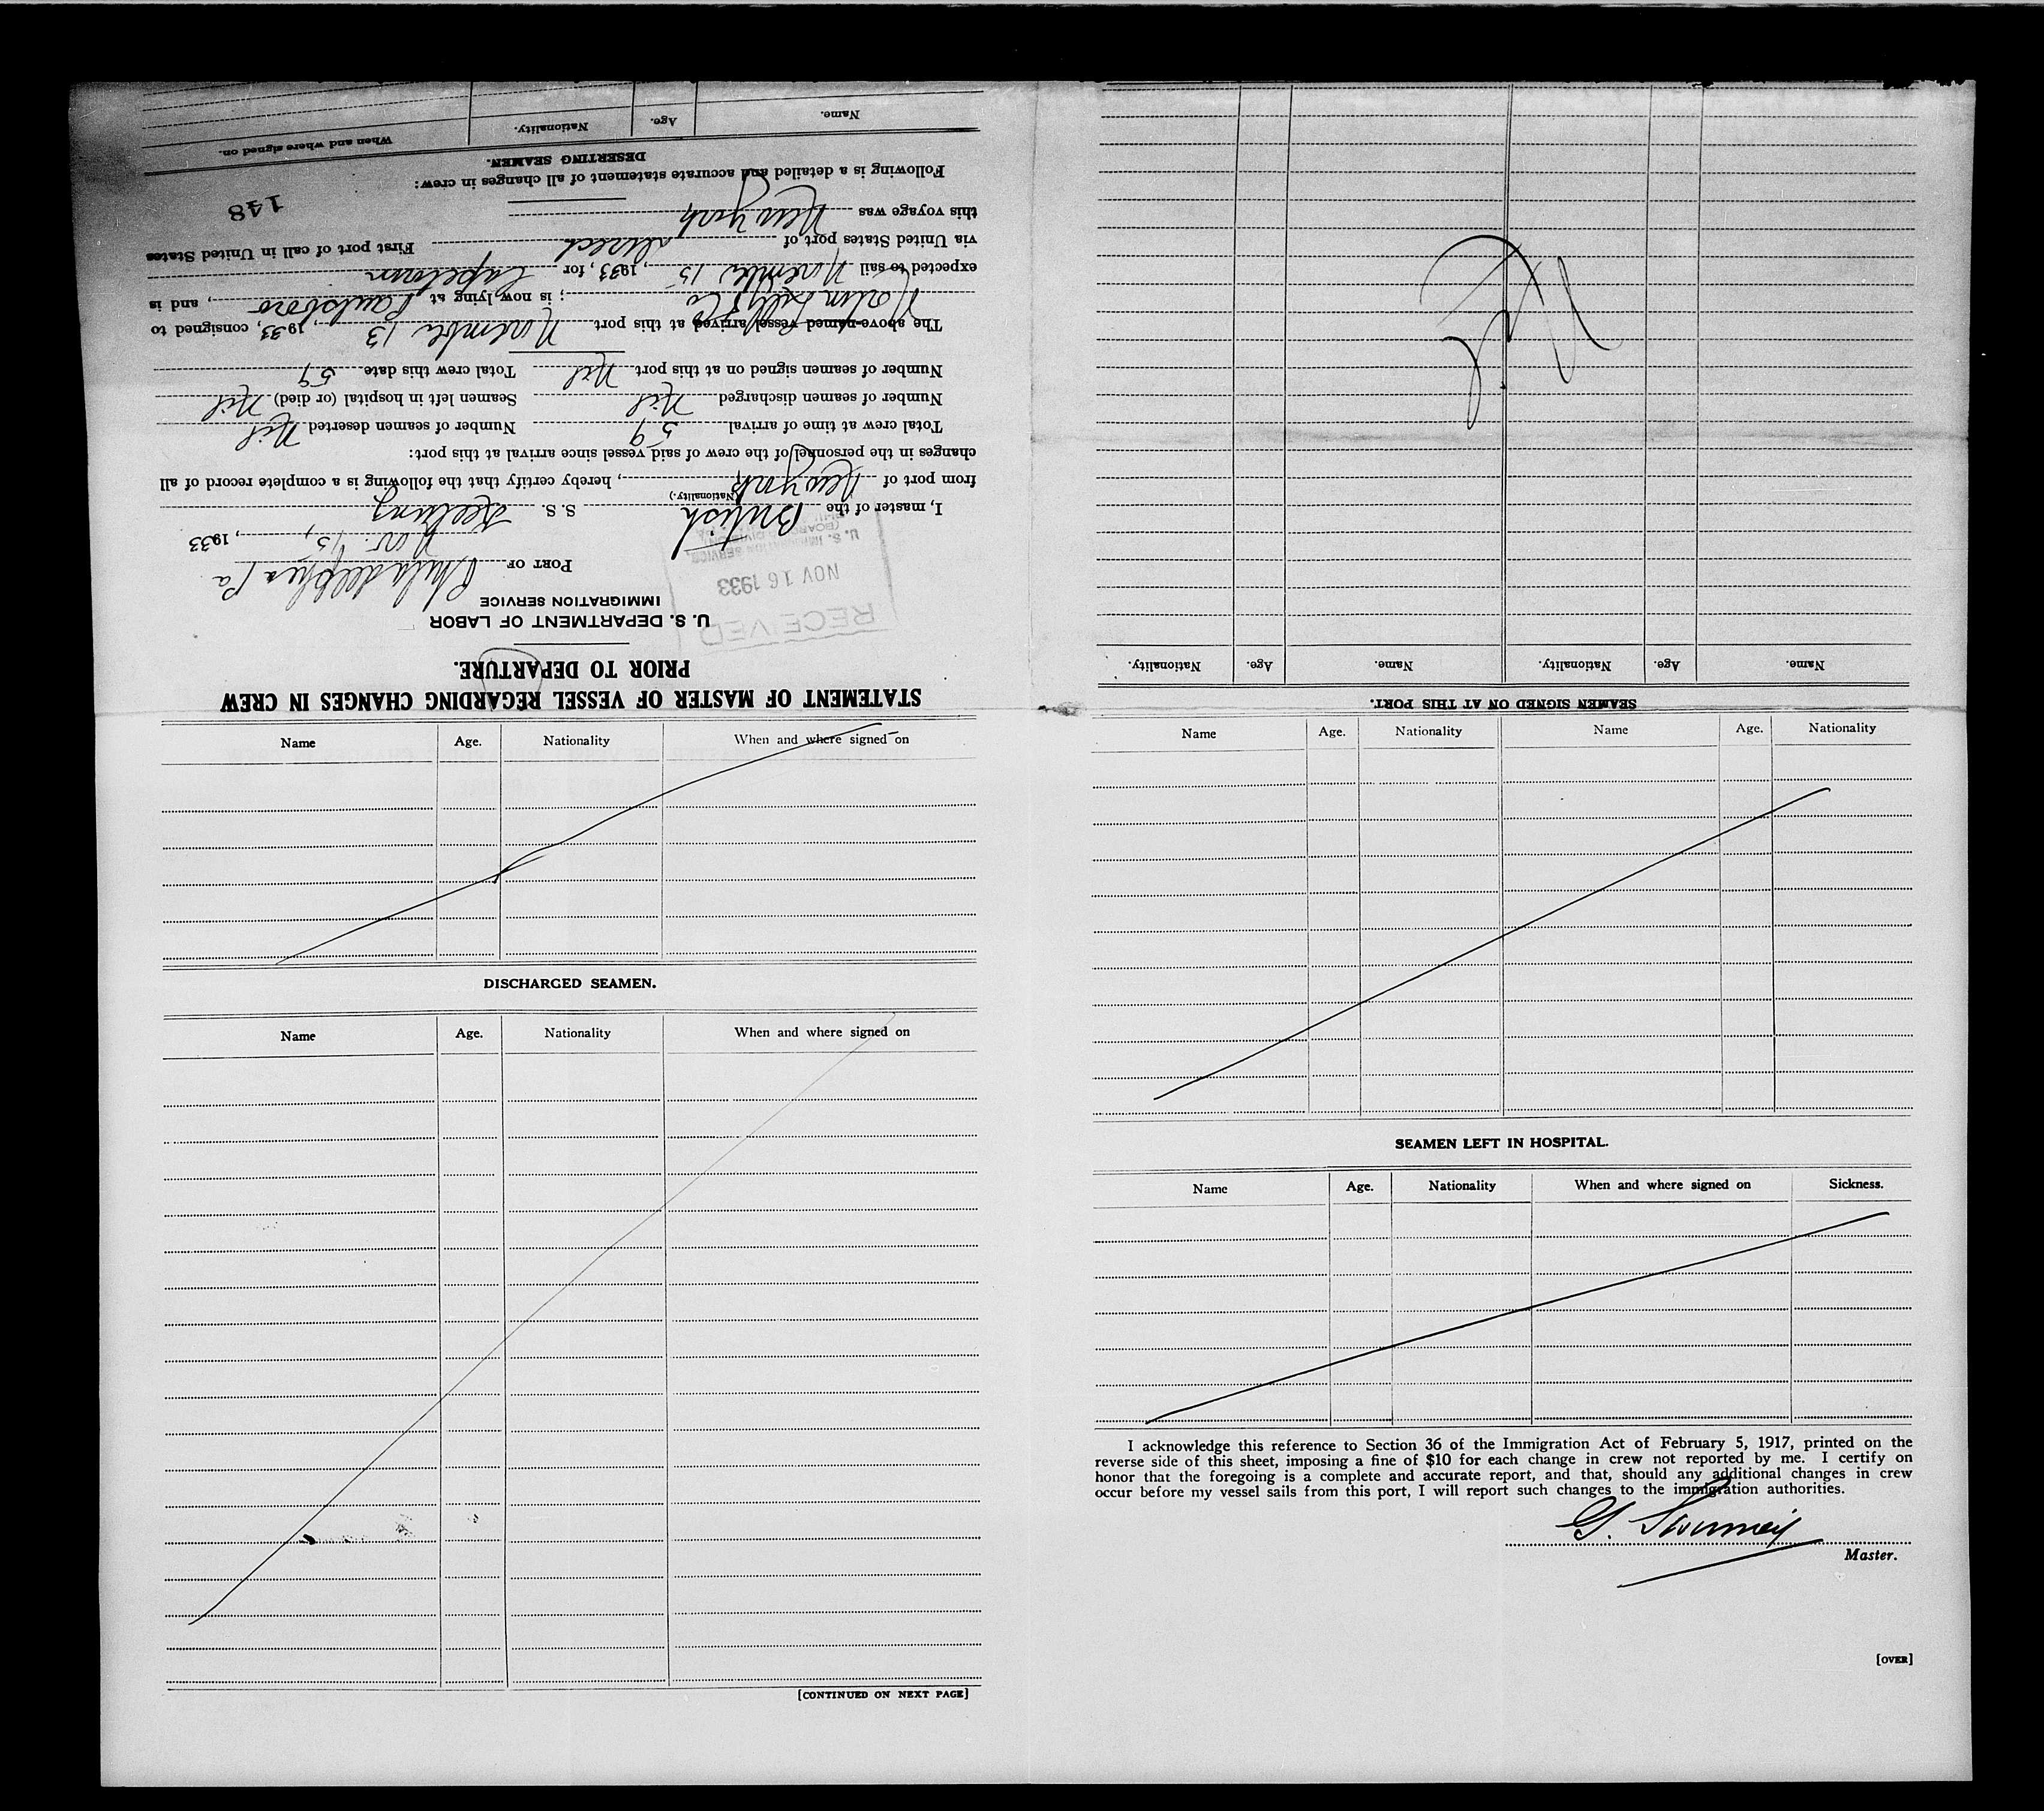 STATEMENT OF MASTER OF VESSEL REGARDING CHANGES IN CREW
PRIOR TO DEPARTURE.
U. S. DEPARTMENT OF LABOR
IMMIGRATION SERVICE
RECEIVED
NOV 16 1933
U. S. IMMIGRATION SERVICE,
PORT OF Philadelphia Pa
Nov. 15, 1933
I, master of the British S. S.
(Nationality.)
from port of New York, hereby certify that the following is a complete record of all
changes in the personnel of the crew of said vessel since arrival at this port:
Total crew at time of arrival 59 Number of seamen deserted Nil
Number of seamen discharged Nil Seamen left in hospital (or died) Nil
Number of seamen signed on at this port Nil Total crew this date 59
The above-named vessel arrived at this port November 13, 1933, consigned to
Norton Lilly & Co; is now lying at Paulsboro, and is
expected to sail November 15, 1933, for Capetown
via United States port of direct First port of call in United States
this voyage was New York
148
Following is a detailed and accurate statement of all changes in crew:
DESERTING SEAMEN.
Name. Age. Nationality. When and where signed on.
Name Age. Nationality When and where signed on
DISCHARGED SEAMEN.
Name Age. Nationality When and where signed on
[CONTINUED ON NEXT PAGE]
SEAMEN SIGNED ON AT THIS PORT.
Name. Age. Nationality. Name. Age. Nationality.
Nil
Name Age. Nationality Name Age. Nationality
SEAMEN LEFT IN HOSPITAL.
Name Age. Nationality When and where signed on Sickness.
I acknowledge this reference to Section 36 of the Immigration Act of February 5, 1917, printed on the
reverse side of this sheet, imposing a fine of $10 for each change in crew not reported by me. I certify on
honor that the foregoing is a complete and accurate report, and that, should any additional changes in crew
occur before my vessel sails from this port, I will report such changes to the immigration authorities.
G.
Master.
[OVER]